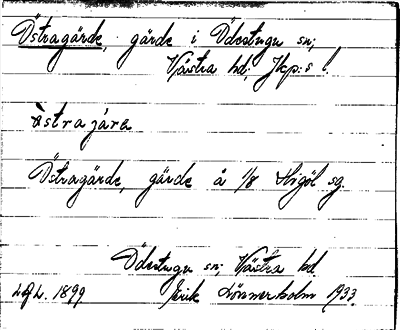 Östragärde, gärde i Ödestugu sn;
Västra hd; Jkp:s l.
åstrajära
Östragärde, gärde å 1/8 Stigöl sg.
Ödestugu sn; Västra hd.
1899 Erik Lönnerholm 1933